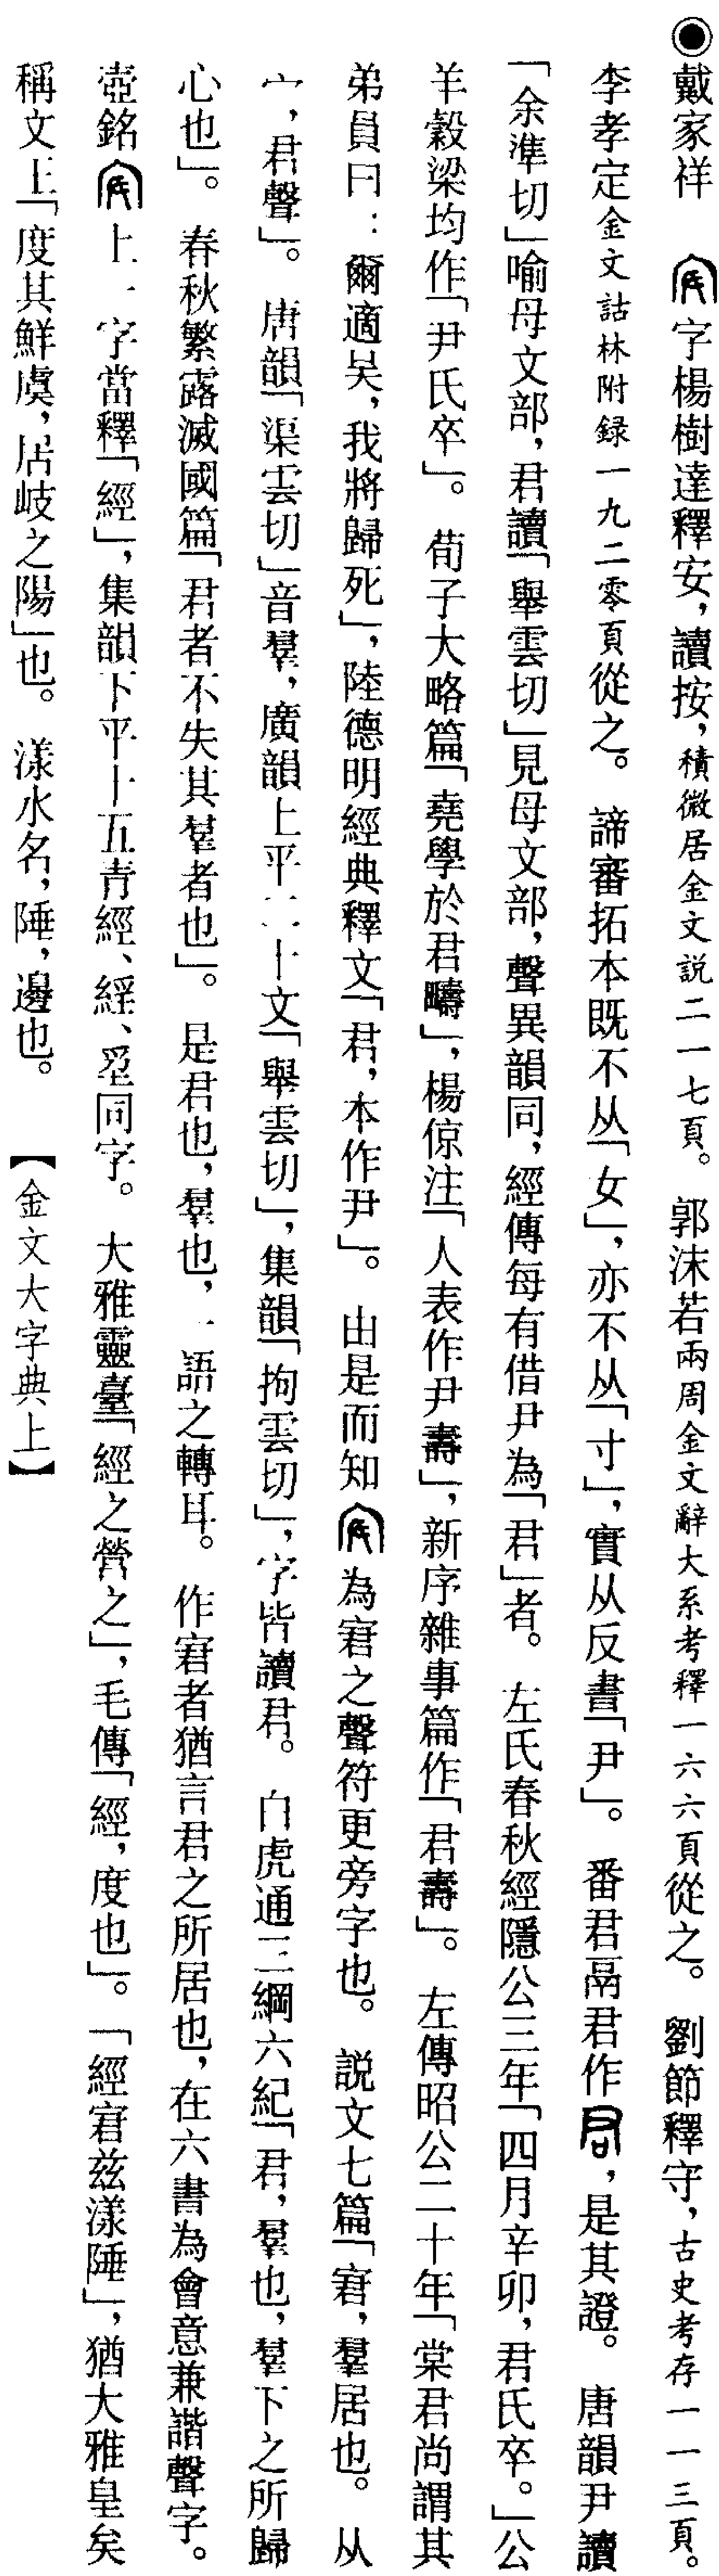 ◉戴家祥　字楊樹達釋安，讀按，積微居金文説二一七頁。郭沫若兩周金文辭大系考釋一六六頁從之。劉節釋守，古史考存一一三頁。
李孝定金文詁林附録一九二零頁從之。諦審拓本既不从「女」，亦不从「寸」，實从反書「尹」。番君鬲君作，是其證。唐韻尹讀
「余準切」喻母文部，君讀「舉雲切」見母文部，聲異韻同，經傳每有借尹為「君」者。左氏春秋經隱公三年「四月辛卯，君氏卒。」公
羊穀梁均作「尹氏卒」。荀子大略篇「堯學於君疇」，楊倞注「人表作尹壽」，新序雜事篇作「君壽」。左傳昭公二十年「棠君尚謂其
弟員曰：爾適吴，我將歸死」，陸德明經典釋文「君，本作尹」。由是而知為宭之聲符更旁字也。説文七篇「宭，羣居也。从
宀，君聲」。唐韻「渠雲切」音羣，廣韻上平二十文「舉雲切」，集韻「拘雲切」，字皆讀君。白虎通三綱六紀「君，羣也，羣下之所歸
心也」。春秋繁露滅國篇「君者不失其羣者也」。是君也，羣也，一語之轉耳。作宭者猶言君之所居也，在六書為會意兼諧聲字。
壺銘上一字當釋「經」，集韻下平十五青經、經、巠同字。大雅靈臺「經之營之」，毛傳「經，度也」。「經宭兹漾陲」，猶大雅皇矣
稱文王「度其鮮虞，居岐之陽」也。漾水名，陲，邊也。【金文大字典上】